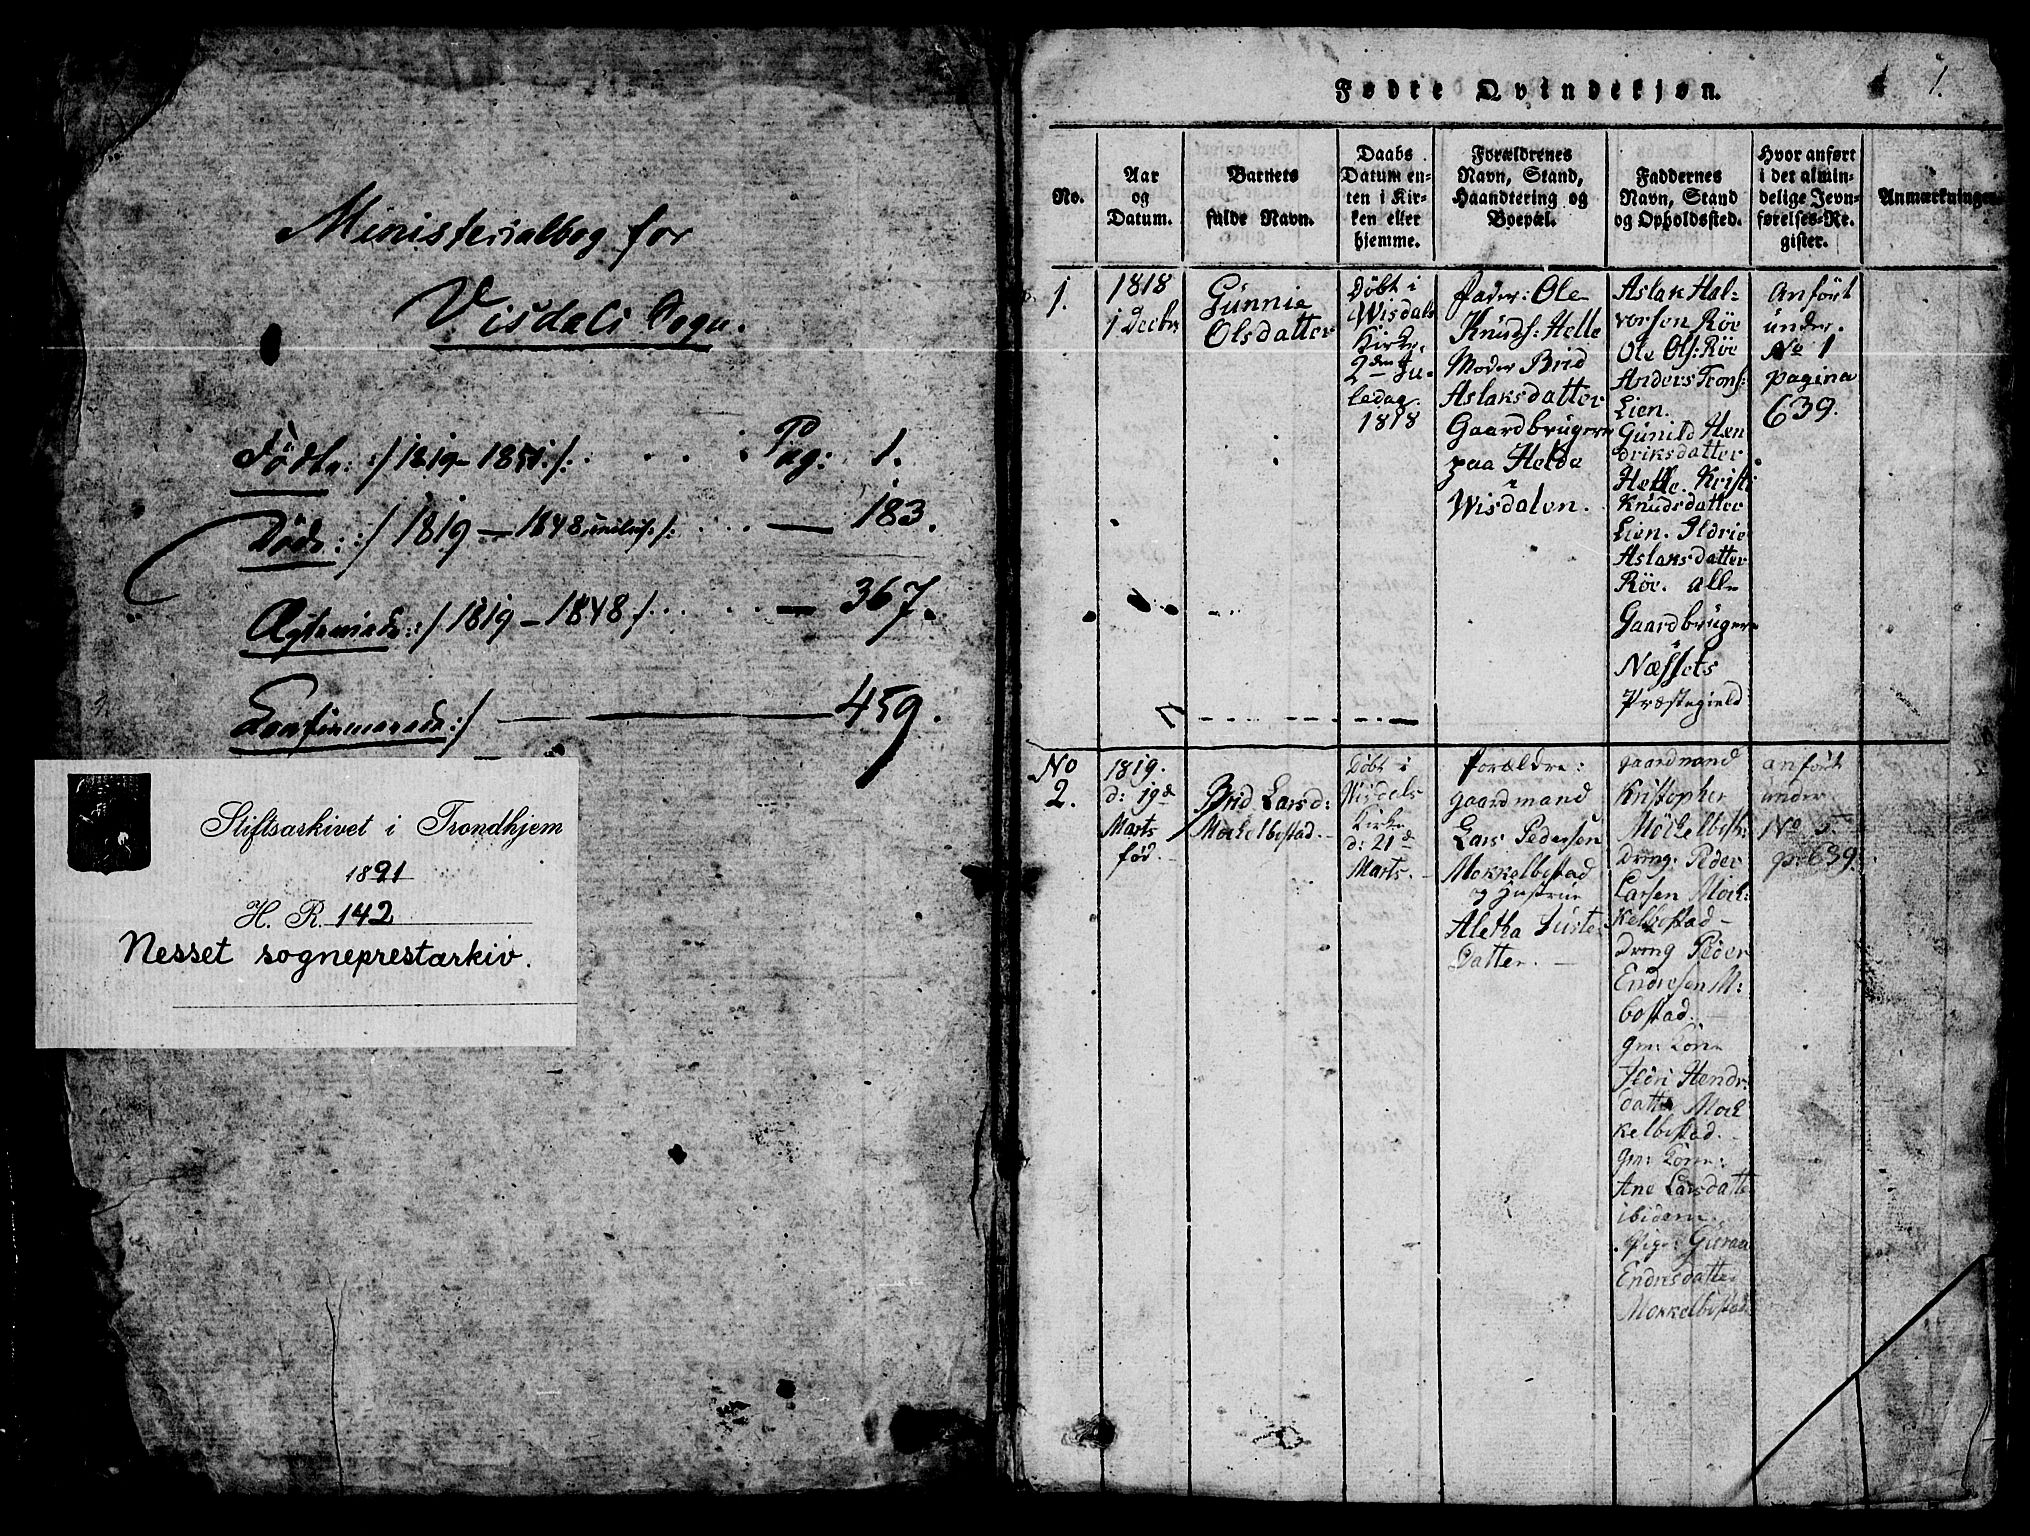 Ministerialbog for
Visdals Sogn.
Födte: :/ 1819-1851:/: Pag: 1.
Döde: :/ 1819 — 1848 :/: — 183.
Ægteviede: :/ 1819 — 1848 /: — 367.
Confirmerede :/ — 459.
Stiftsarkivet i Trondhjem
1891
H. R. 142
Nesset sogneprestarkiv.
1.
Fødte Qvindekjøn.
No.
Aar
og
Datum.
Barnets
fulde Navn.
Daabs
Datum en-
ten i Kir-
ken eller
hjemme.
Forældrenes
Navn, Stand,
Haandtering og
Boepæl.
Faddernes
Navn, Stand
og Opholdssted.
Hvor anført
i det almin-
delige Jevn-
førelses-Re-
gister.
Anmærkninger
1.
1818
1 Decbr
Günnie
Olsdatter
Döbt i
Wisdals
Kirke,
2den Ju-
ledag.
1818
fader: Ole
Knuds: Helle
Moder Brid
Aslaksdatter
Gaardbrugere
paa Helde
Wisdalen.
Aslak Hal-
vorsen Röe
Ole Ols: Röe
Anders Trons:
Lien.
Günild Hæn
driksdatter
Helle. Kristi
Knudsdatter
Lien. Ildrie
Aslaksdatter
Röe. alle
Gaardbrugere
Næssets
Præstegield
Anfört
under.
No 1
pagina
639.
No
2.
1819.
d: 19de
Marts
fød.
Brid Larsd:
Mockelbostad.
Döbt i
Visdals
Kirke
d: 21de
Marts.
Forældre:
gaardmand
Lars Pedersen
Mokkelbostad
og Hustrue
Aletha Juste
Datter.
gaardmand
Kristopher
Möckelbost:
Dreng: Peder
Larsen Mock
kelbostad
Dreng Peder
Endresen M:
bostad.
gm: Kone
Ildri Hendr:
datter Mock
kelbostad.
gm: Kone:
Ane Larsdatte
ibidem.
Pige: Guraa
Endresdatter
Mokkelbostad.
anfört
under
No 5.
p: 639.